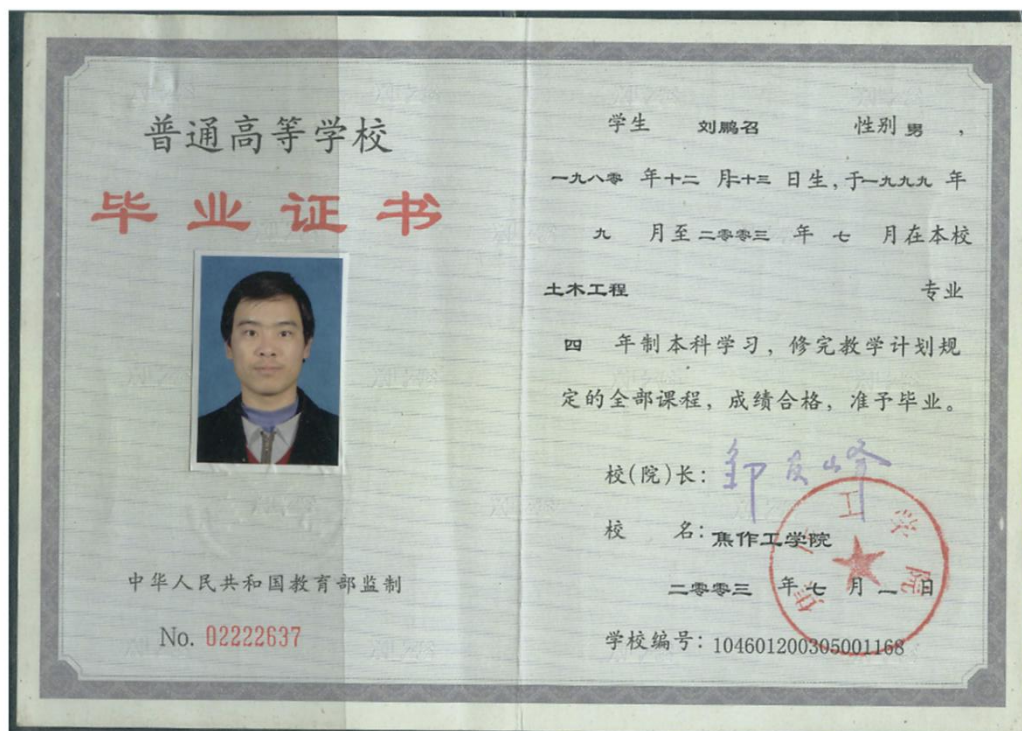 普通高等学校
毕业证书
中华人民共和国教育部监制
No. 02222637
学生 刘鹏召 性别 男 ，
一九八零 年 十二 月 二十三 日生，于 一九九九 年
九 月至 二零零三 年 七 月在本校
土木工程 专业
四 年制本科学习，修完教学计划规
定的全部课程，成绩合格，准予毕业。
校(院)长：邹友峰
校 名：焦作工学院
二零零三 年 七 月 一 日
学校编号：104601200305001168
焦作工学院